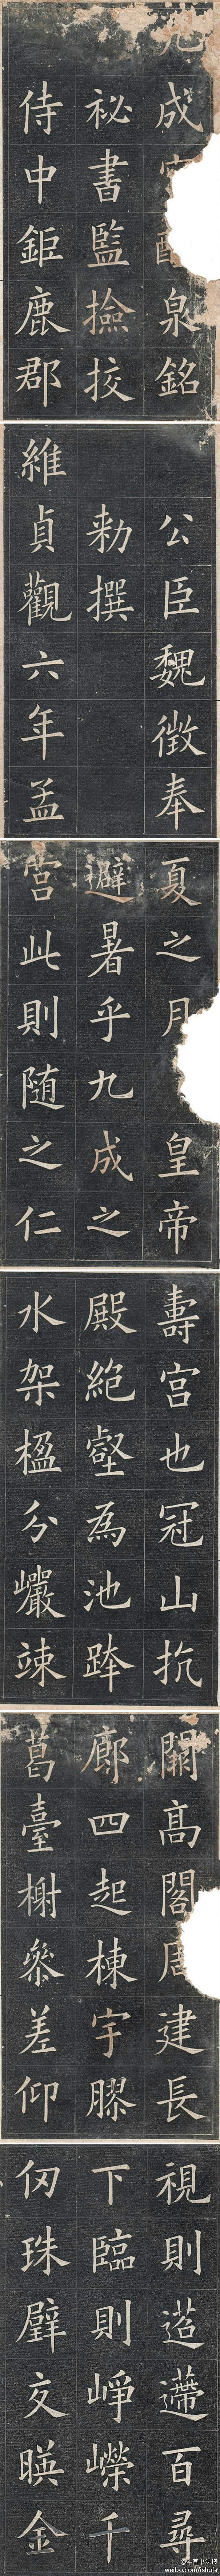 九成宮醴泉銘
祕書監撿挍
侍中鉅鹿郡
公臣魏徵奉
勅撰
維貞觀六年孟
夏之月皇帝
避暑乎九成之
宮此則随之仁
壽宮也冠山抗
殿絕壑為池跨
水架楹分巖竦
闕高閣周建長
廊四起棟宇膠
葛臺榭參差仰
視則迢遰百尋
下臨則崢嶸千
仞珠璧交暎金
@中国书法报
weibo.com/jishufa